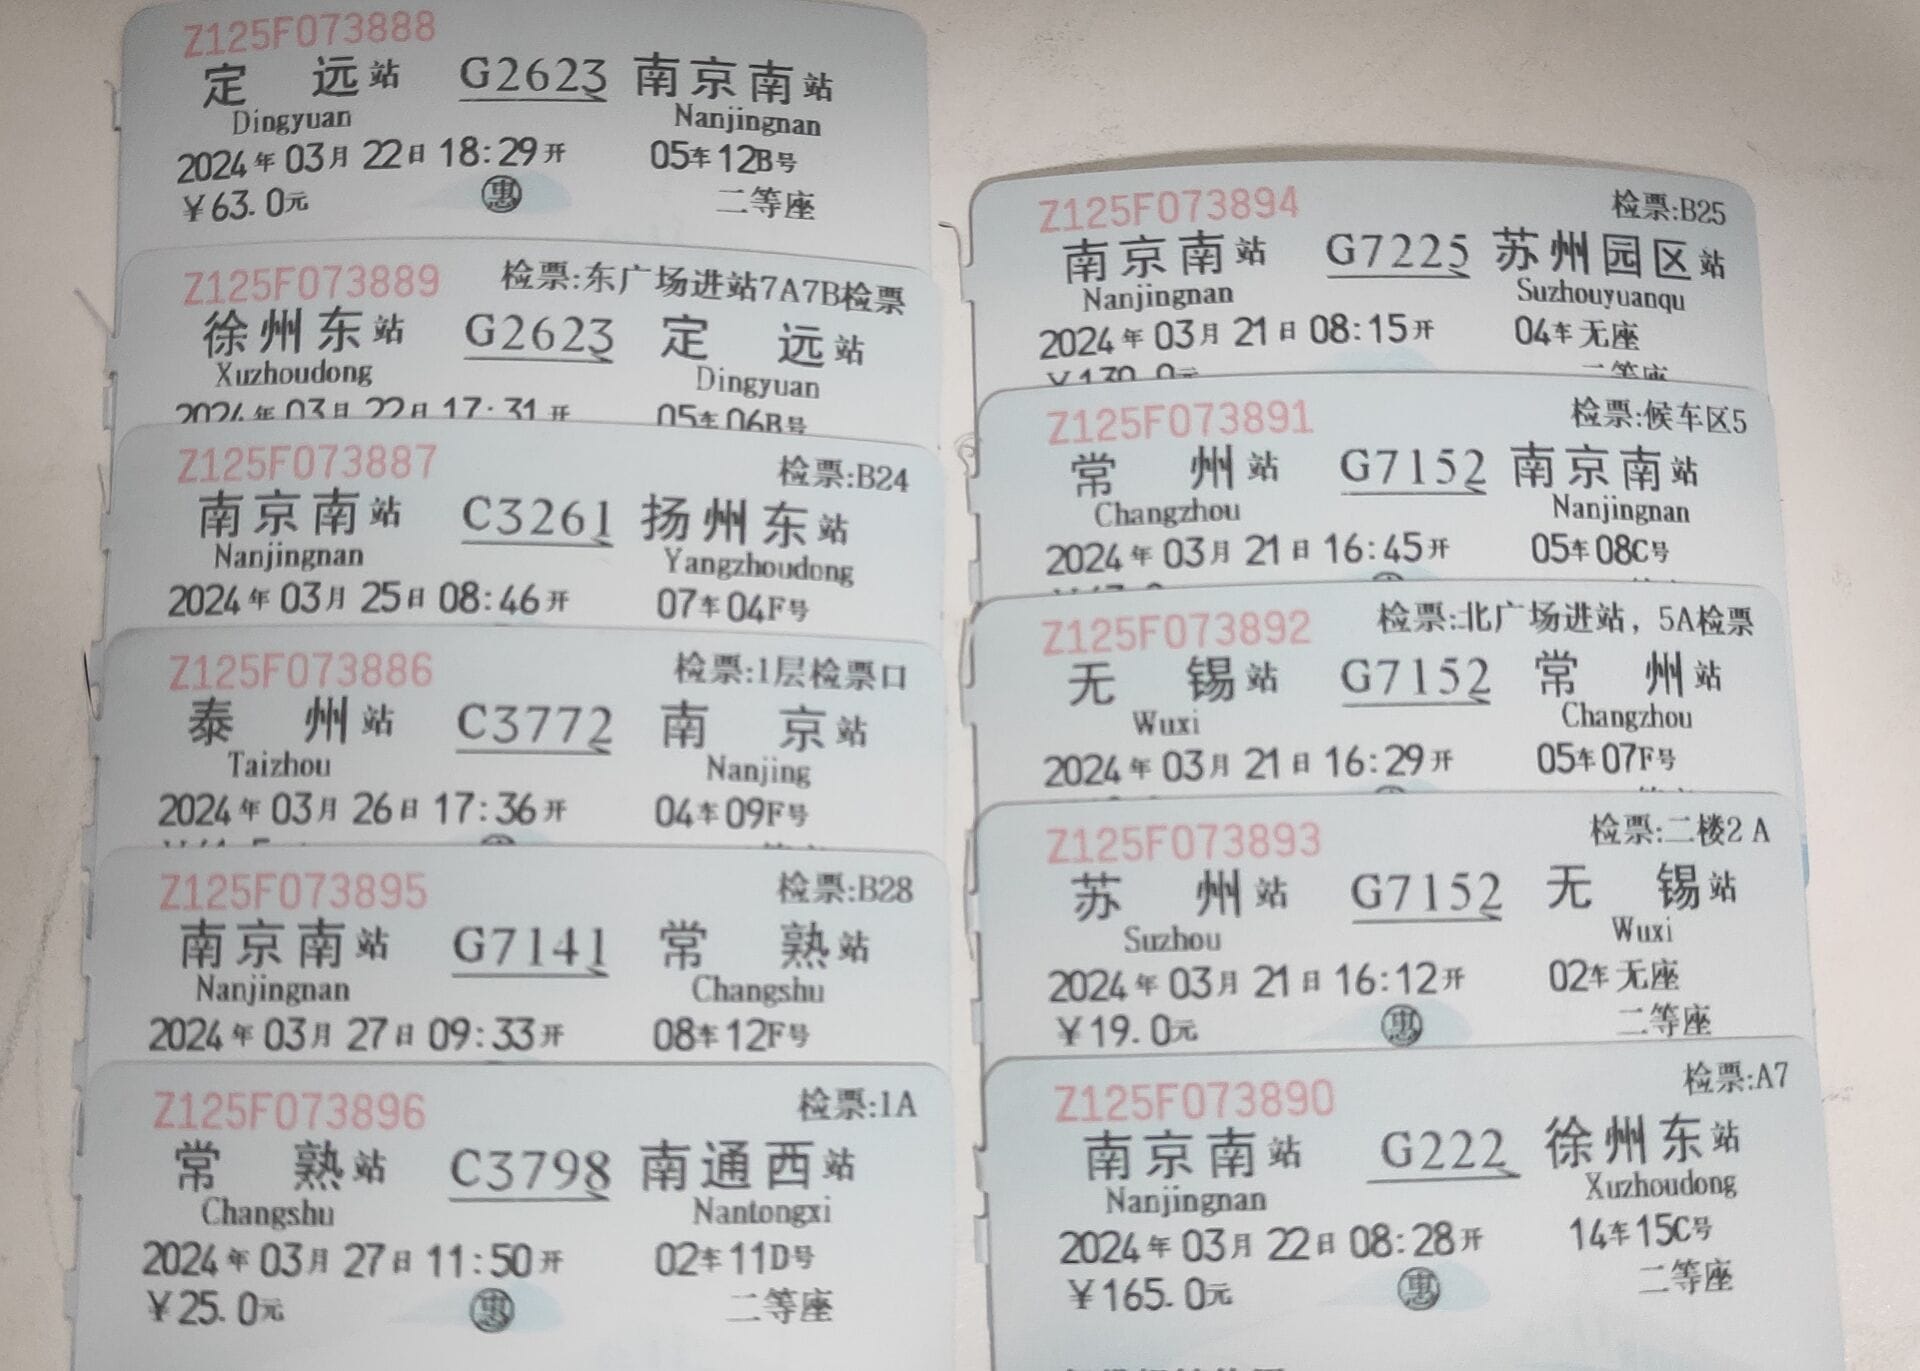 Z125F073888
定远站 G2623 南京南站
Dingyuan Nanjingnan
2024年03月22日18:29开 05车12B号
￥63.0元 惠 二等座
Z125F073889 检票:东广场进站7A7B检票
徐州东站 G2623 定远站
Xuzhoudong Dingyuan
2024年03月22日17:31开 05车06B号
Z125F073887 检票:B24
南京南站 C3261 扬州东站
Nanjingnan Yangzhoudong
2024年03月25日08:46开 07车04F号
Z125F073886 检票:1层检票口
泰州站 C3772 南京站
Taizhou Nanjing
2024年03月26日17:36开 04车09F号
Z125F073895 检票:B28
南京南站 G7141 常熟站
Nanjingnan Changshu
2024年03月27日09:33开 08车12F号
Z125F073896 检票:1A
常熟站 C3798 南通西站
Changshu Nantongxi
2024年03月27日11:50开 02车11D号
￥25.0元 惠 二等座
Z125F073894 检票:B25
南京南站 G7225 苏州园区站
Nanjingnan Suzhouyuanqu
2024年03月21日08:15开 04车无座
二等座
Z125F073891 检票:候车区5
常州站 G7152 南京南站
Changzhou Nanjingnan
2024年03月21日16:45开 05车08C号
Z125F073892 检票:北广场进站，5A检票
无锡站 G7152 常州站
Wuxi Changzhou
2024年03月21日16:29开 05车07F号
Z125F073893 检票:二楼2 A
苏州站 G7152 无锡站
Suzhou Wuxi
2024年03月21日16:12开 02车无座
￥19.0元 惠 二等座
Z125F073890 检票:A7
南京南站 G222 徐州东站
Nanjingnan Xuzhoudong
2024年03月22日08:28开 14车15C号
￥165.0元 惠 二等座